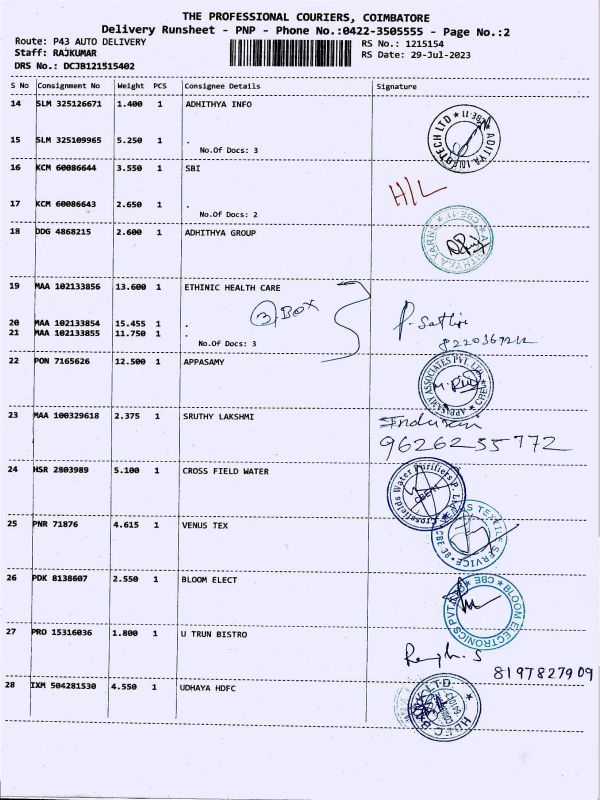 THE PROFESSIONAL COURIERS, COIMBATORE
Delivery Runsheet - PNP - Phone No.:0422-3505555 - Page No.:2
Route: P43 AUTO DELIVERY
Staff: RAJKUMAR
DRS No.: DCJB121515402
RS No.: 1215154
RS Date: 29-Jul-2023
S No Consignment No Weight PCS Consignee Details Signature
14 SLM 325126671 1.400 1 ADHITHYA INFO
15 SLM 325109965 5.250 1 .
No.Of Docs: 3
ADITYA INFOTECH LTD * CBE-11 *
16 KCM 60086644 3.550 1 SBI
H/L
17 KCM 60086643 2.650 1 .
No.Of Docs: 2
18 DDG 4868215 2.600 1 ADHITHYA GROUP
19 MAA 102133856 13.600 1 ETHINIC HEALTH CARE
3 BOX
20 MAA 102133854 15.455 1 .
21 MAA 102133855 11.750 1 .
No.Of Docs: 3
22 PON 7165626 12.500 1 APPASAMY
APPASAMY ASSOCIATES PVT. LTD. CBE
23 MAA 100329618 2.375 1 SRUTHY LAKSHMI
9626255772
24 HSR 2803989 5.100 1 CROSS FIELD WATER
Crossfields Water Purifiers P. Ltd.
25 PNR 71876 4.615 1 VENUS TEX
26 PDK 8138607 2.550 1 BLOOM ELECT
BLOOM ELECTRONICS PVT * CBE *
27 PRO 15316036 1.800 1 U TRUN BISTRO
8197827909
28 IXM 504281530 4.550 1 UDHAYA HDFC
HDFC BANK LTD